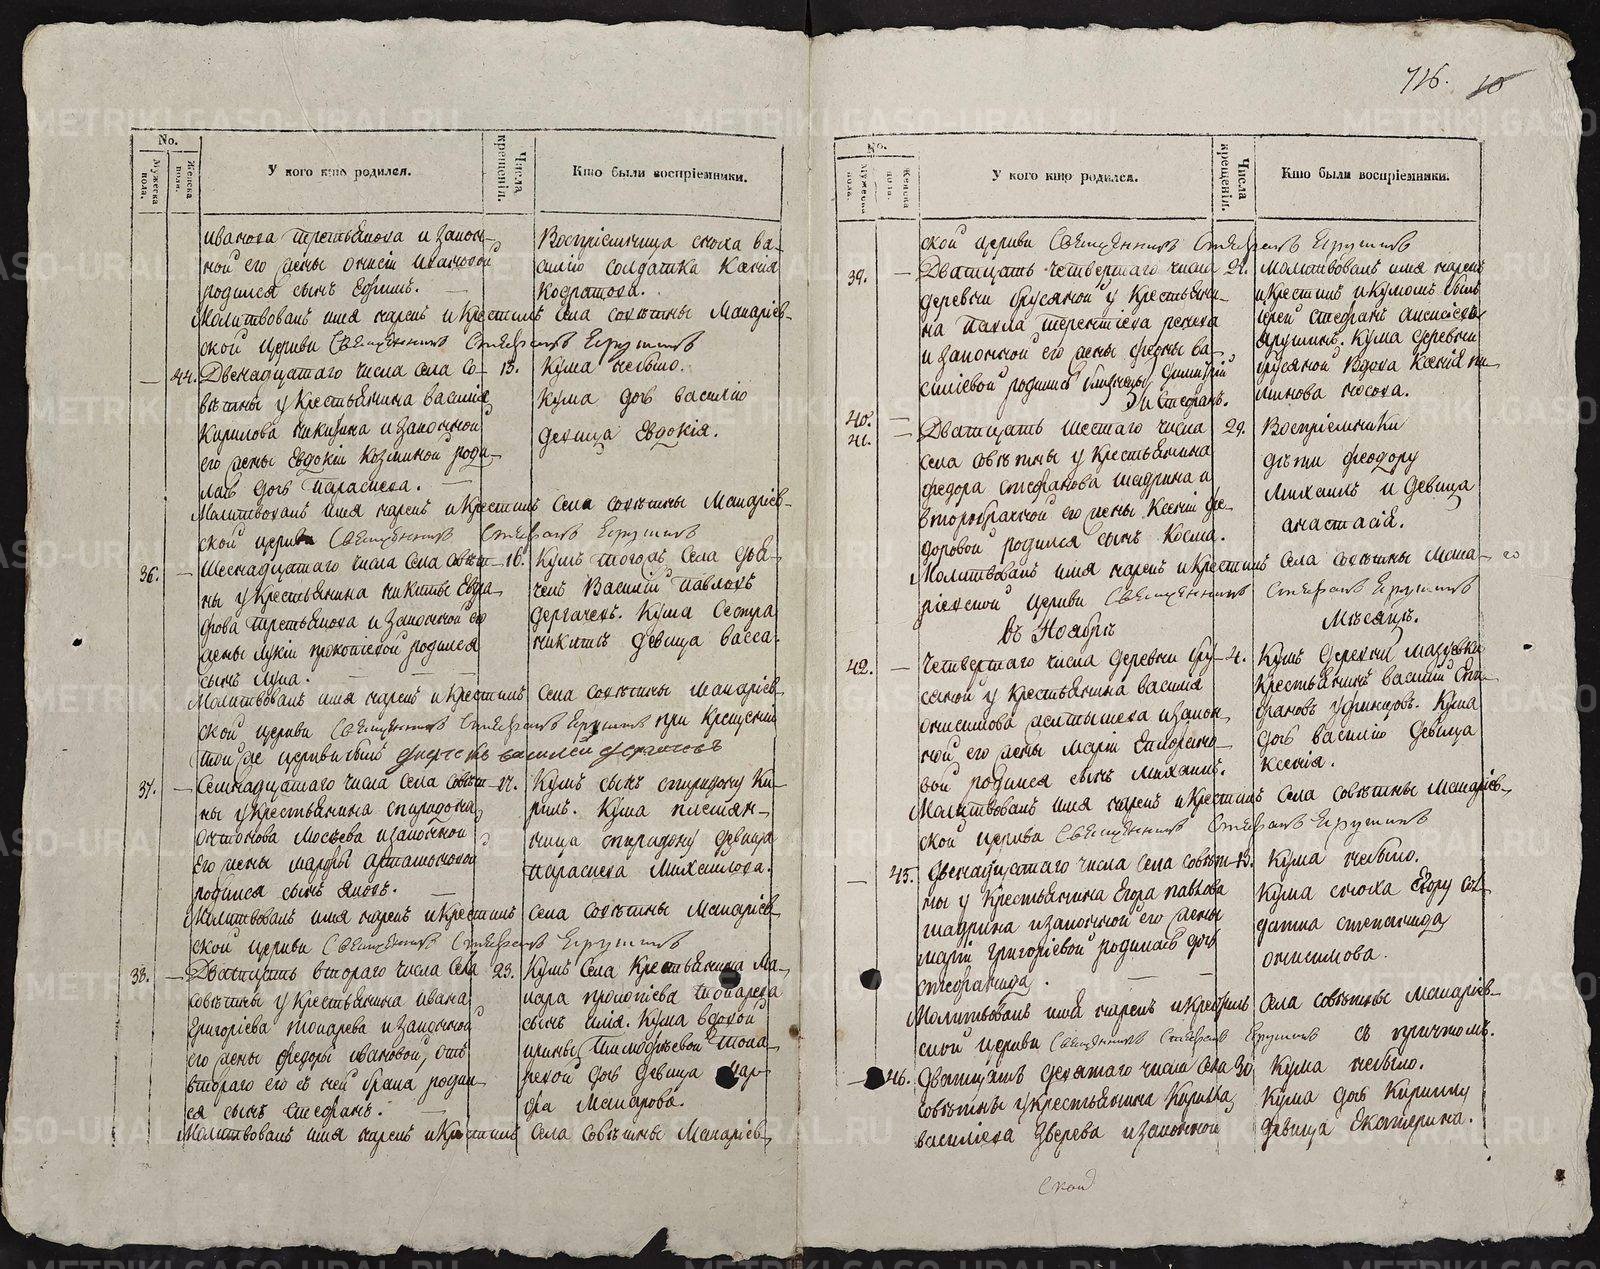 716. 10
No.
Мужеска пола.
Женска пола.
У кого кто родился.
Числа крещенiя.
Кто были воспрiемники.
иванова третьякова и закон-
ной его жены онисiи ивановой
родился сынъ Ефимъ.
Воспрiемница сноха ва-
силiю солдатка Ксенiя
Кодратова.
Молитвовалъ имя нарекъ и Крестилъ села совѣтны Макарiев-
ской церкви Священникъ Стефанъ
44. Двенадцатаго числа села со-
вѣтны у Крестьянина василiя
Кирилова никитина и законной
его жены Евдокiи Козминой роди-
лась дочь параскева.
13. Кума небыло.
Кума дочь василiю
девица Евдокiя.
Молитвовалъ имя нарекъ и Крестилъ Села совѣтны Макарiев-
ской церкви Священникъ Стефанъ
36. Шеснадцатаго числа Села совѣт-
ны у крестьянина никиты
третьякова и законной его
жены лукiи прокопiевой родился
сынъ лука.
16. Кумъ тогожъ Села дья-
чекъ Василiй павловъ
дергачевъ. Кума Сестра
никитѣ девица васса.
Молитвовалъ имя нарекъ и Крестилъ Села совѣтны Макарiев-
ской церкви Священникъ Стефанъ при Крещенiи
той же церкви былъ
37. Семнадцатаго числа Села совѣт-
ны у крестьянина спиридона
Мосѣева и законной
его жены марфы
родился сынъ яковъ.
17. Кумъ сынъ спиридону Ки-
рилъ. Кума племян-
ница спиридону девица
параскева Михаилова.
Молитвовалъ имя нарекъ и Крестилъ села совѣтны Макарiев-
ской церкви Священникъ Стефанъ
38. Дватцать втораго числа Села
совѣтны у Крестьянина ивана
Григорiева токарева и законной
его жены федоры ивановой, отъ
втораго его съ ней брака родил-
ся сынъ стефанъ.
23. Кумъ Села Крестьянина Ма-
кара прокопiева токарева
сынъ илiя. Кума вдовой
ирины Тимофѣевой тока-
ревой дочь девица мар-
фа Макарова.
Молитвовалъ имя нарекъ и Крестилъ Села совѣтны Макарiев-
No.
Мужеска пола.
Женска пола.
У кого кто родился.
Числа крещенiя.
Кто были воспрiемники.
ской церкви Священникъ Стефанъ
39. Дватцать четвертаго числа
деревни брусяной у Крестьяни-
на павла терентiева
и законной его жены феклы ва-
силiевой родились близнецы димитрiй
и Стефанъ.
40.
Молитвовалъ имя нарекъ
и Крестилъ и Кумомъ былъ
iерей стефанъ алексiевъ
Кума деревни
брусяной Вдова Ксенiя фи-
липова носова.
41. Дватцать шестаго числа
села совѣтны у Крестьянина
федора стефанова шадрина и
второбрачной его жены Ксенiи фе-
доровой родился сынъ Косма.
29. Воспрiемники
дѣти феодору
Михаилъ и девица
анастасiя.
Молитвовалъ имя нарекъ и Крестилъ Села совѣтны Мака-
рiевской церкви Священникъ Стефанъ
въ Ноябрѣ Мѣсяцѣ.
42. Четвертаго числа деревни бру-
сяной у Крестьянина василiя
онисимова и закон-
ной его жены Марiи
родился сынъ михаилъ.
4. Кумъ деревни
крестьянинъ василiй Сте-
фановъ удинцовъ. Кума
дочь василiю девица
Ксенiя.
Молитвовалъ имя нарекъ и Крестилъ Села совѣтны Макарiев-
ской церкви Священникъ Стефанъ
45. Двенадцатаго числа Села совѣт-
ны у Крестьянина Егора павлова
шадрина и законной его жены
марiи Григорiевой родилась дочь
стефанида.
13. Кума небыло.
Кума сноха Егору сол-
датка степанида
онисимова.
Молитвовалъ имя нарекъ и Крестилъ Села совѣтны Макарiев-
ской церкви Священникъ Стефанъ съ причтомъ.
46. Дватцать девятаго числа Села
совѣтны у Крестьянина Кирилла
василiева Зверева и законной
30. Кума небыло.
Кума дочь Кириллу
девица Екатерина.
METRIKI.GASO-URAL.RU